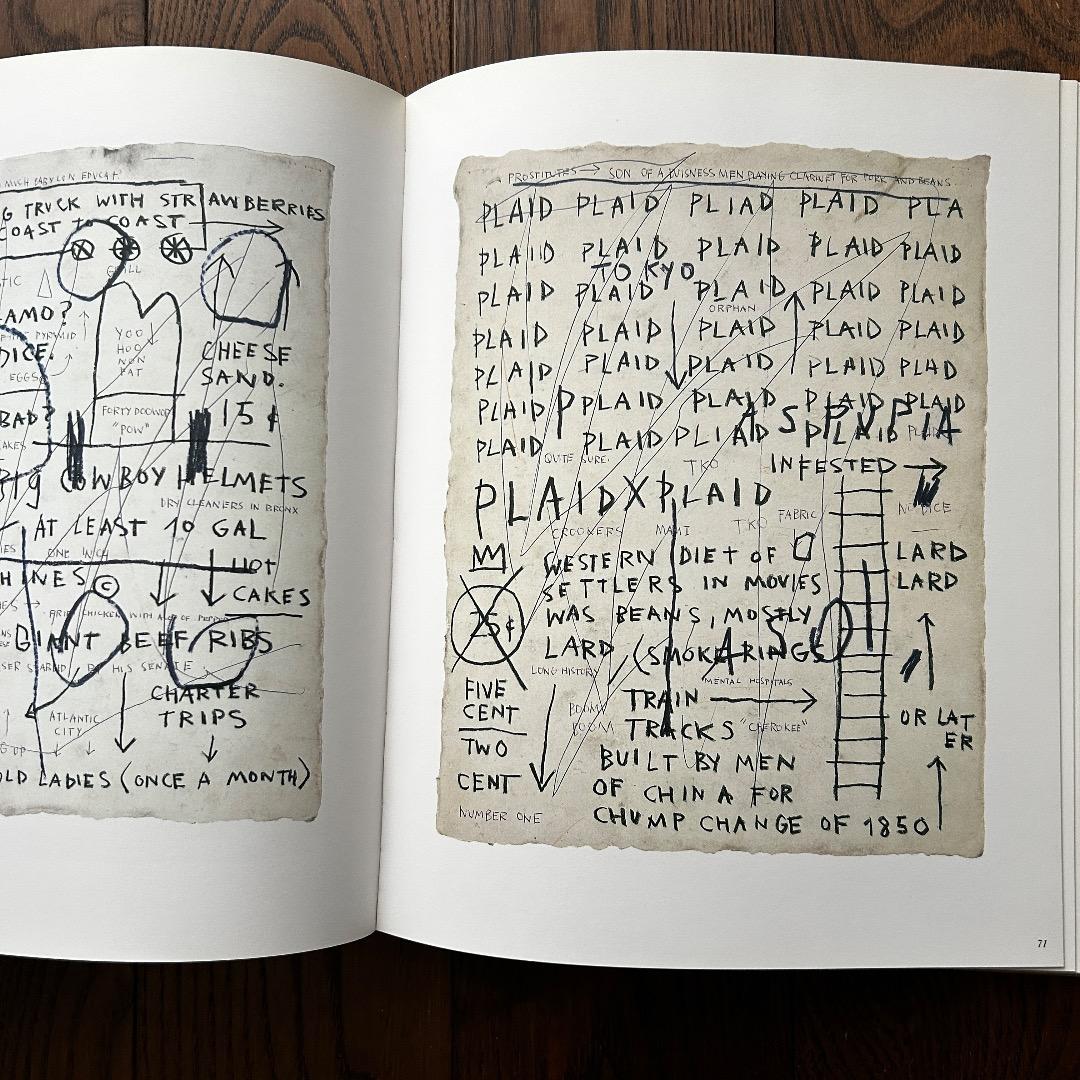 MUCH BABYLON EDUCAT
G TRUCK WITH STRAWBERRIES
COAST TO COAST
AMO?
PYRAMID
DICE.
EGGS
YOO
HOO
NON
FAT
CHEESE
SAND.
15¢
BAD?
FORTY DOOWOP
"POW"
BIG COWBOY HELMETS
DRY CLEANERS IN BRONX
AT LEAST 10 GAL
ONE INCH
HOT
CAKES
HINES ©
GIANT BEEF RIBS
BY HIS SENATE
CHARTER
TRIPS
ATLANTIC
CITY
OLD LADIES (ONCE A MONTH)
PROSTITUTES → SON OF A BUISNESS MEN PLAYING CLARINET FOR PORK AND BEANS.
PLAID PLAID PLIAD PLAID PLA
PLAID PLAID PLAID PLAID PLAID
TOKYO
PLAID PLAID PLAID PLAID PLAID
ORPHAN
PLAID PLAID PLAID PLAID PLAID
PLAID PLAID PLAID PLAID PLAID
PLAID P PLAID PLAID PLAID PLAID
A S P V P I A
PLAID PLAID PLIAD PLAID
QUITE SURE.
TKO
INFESTED →
PLAIDXPLAID
CROOKERS MAMI TKO FABRIC
NO DICE
WESTERN DIET OF
SETTLERS IN MOVIES
25¢
WAS BEANS, MOSTLY
LARD (SMOKE RINGS
LARD
LARD
A S O
LONG HISTORY
MENTAL HOSPITALS
FIVE
CENT
TWO
CENT
NUMBER ONE
BOOM
BOOM
TRAIN →
TRACKS "CHEROKEE"
BUILT BY MEN
OF CHINA FOR
CHUMP CHANGE OF 1850
OR LAT
ER
71